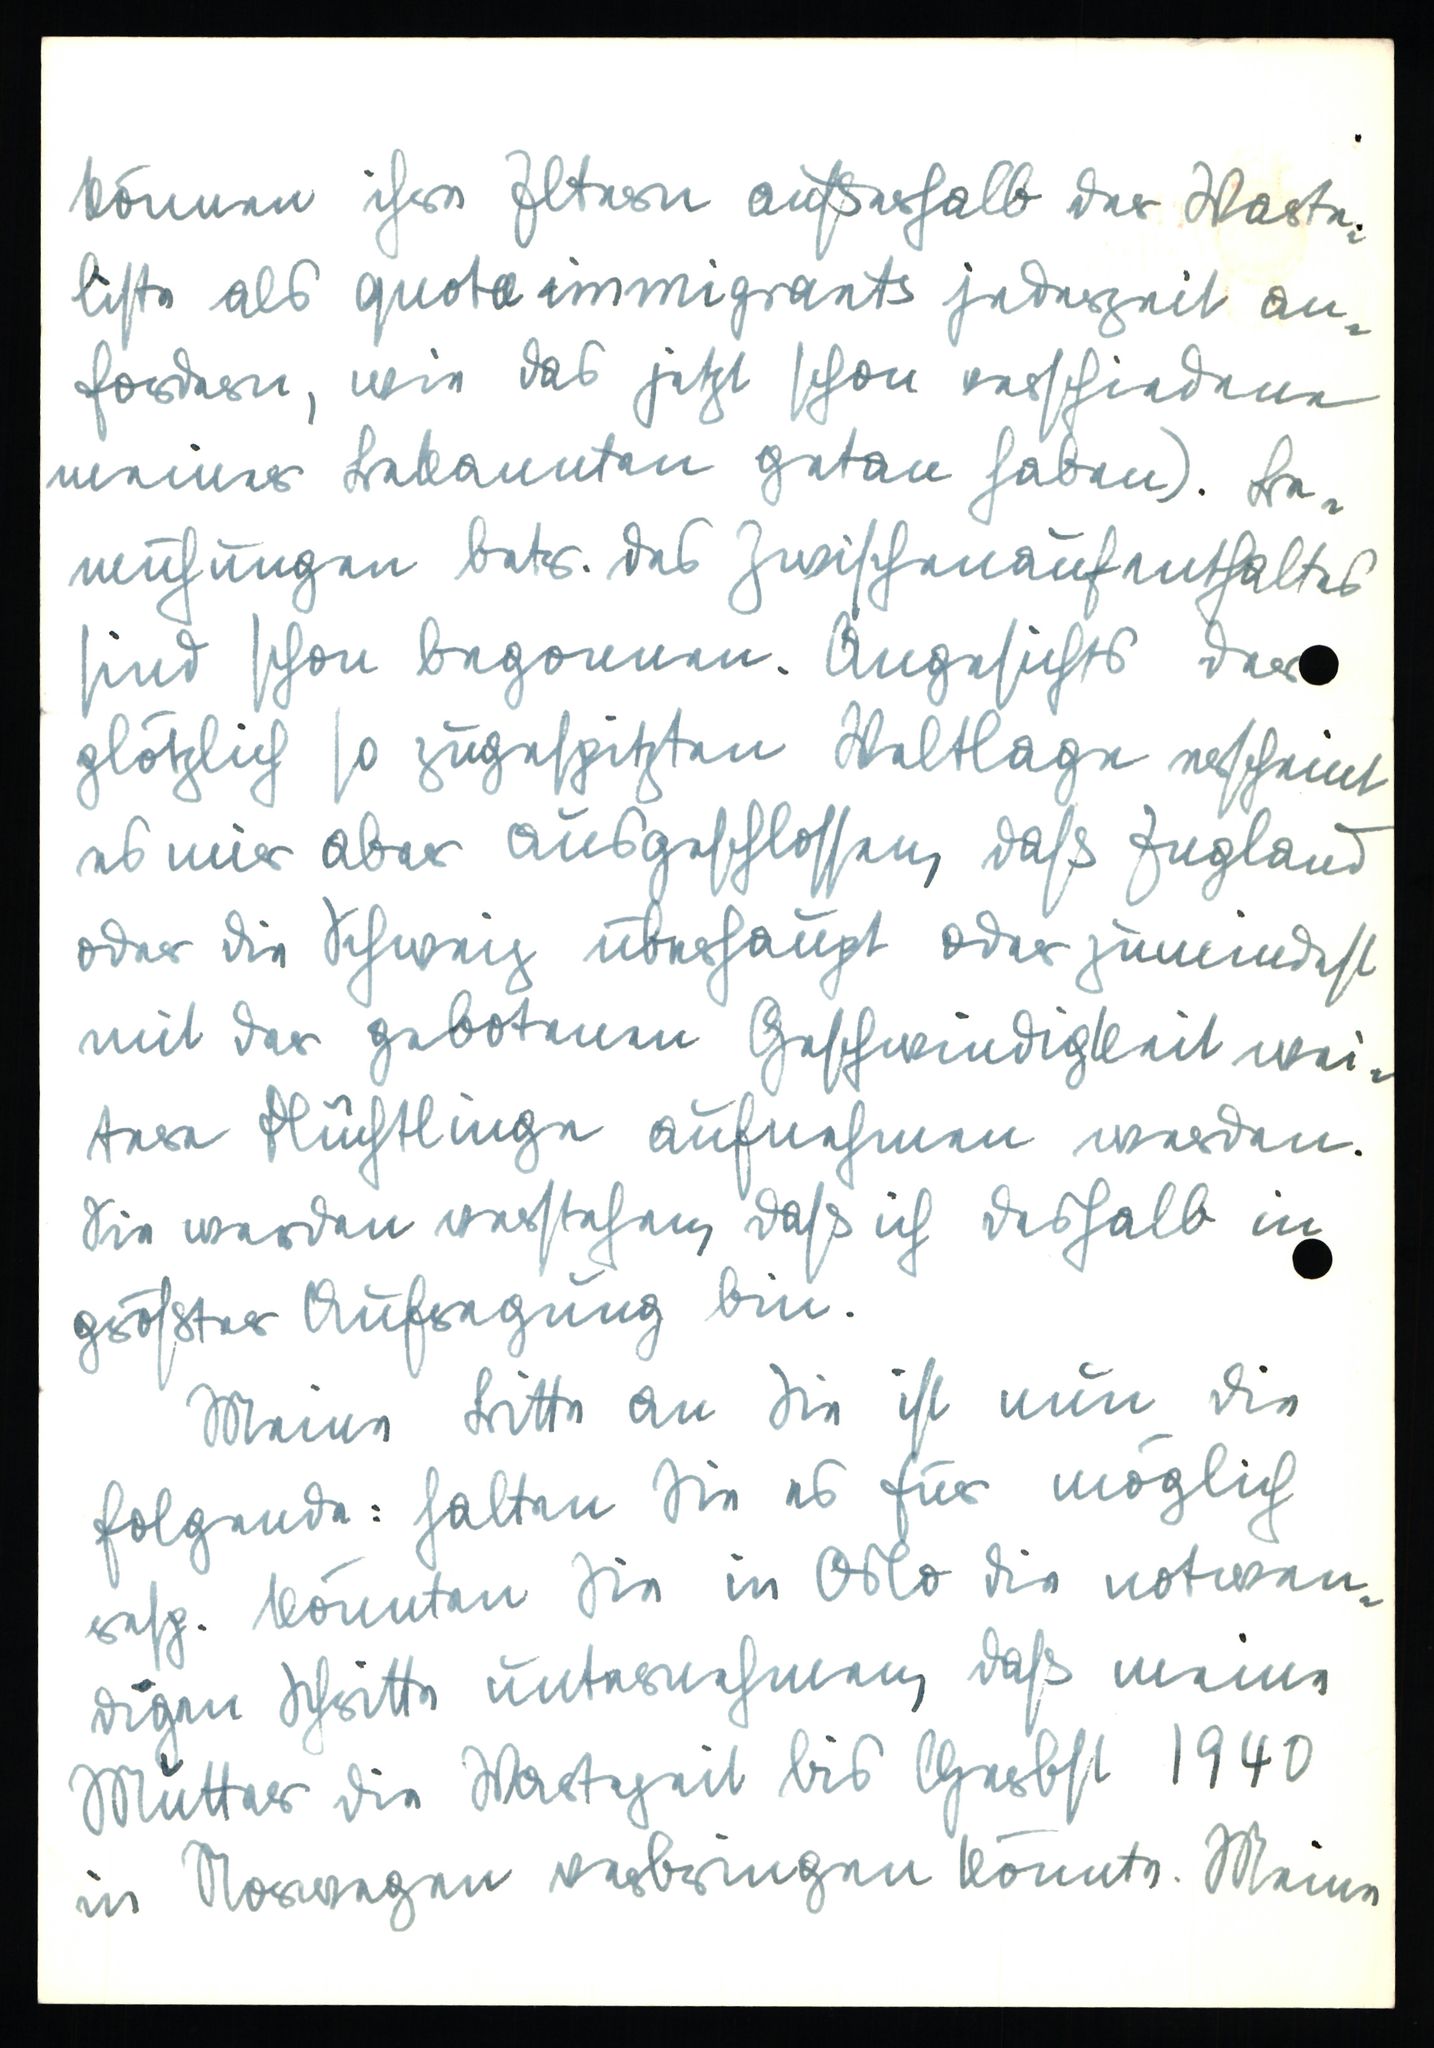 können ihre Eltern außerhalb der Warte-
liste als quota immigrants jederzeit an-
fordern, wie das jetzt schon verschiedene
meiner Bekannten getan haben). Be-
mühungen betr. des Zwischenaufenthaltes
sind schon begonnen. Angesichts der
plötzlich so zugespitzten Weltlage erscheint
es mir aber ausgeschlossen, daß England
oder die Schweiz überhaupt oder zumindest
mit der gebotenen Geschwindigkeit wei-
tere Flüchtlinge aufnehmen werden.
Sie werden verstehen, daß ich deshalb in
größter Aufregung bin.
Meine Bitte an Sie ist nun die
folgende: halten Sie es für möglich
resp. könnten Sie in Oslo die notwen-
digen Schritte unternehmen, daß meine
Mutter die Wartezeit bis Herbst 1940
in Norwegen verbringen könnte. Meine